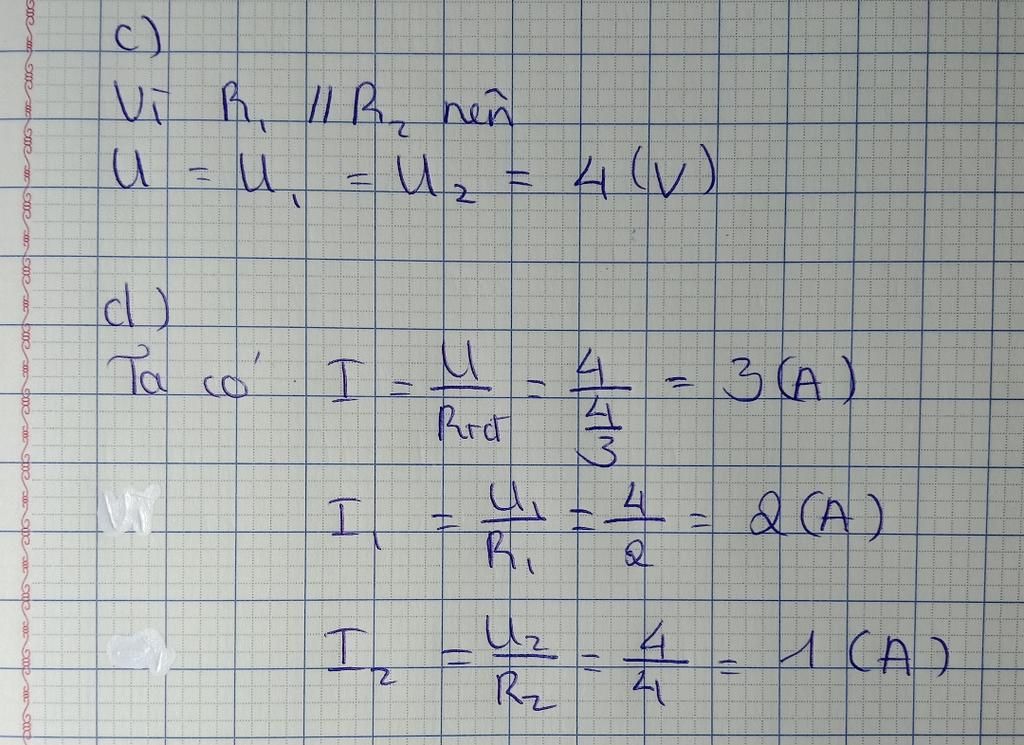 c)
Vì R₁ // R₂ nên
U = U₁ = U₂ = 4 (V)
d)
Ta có I = U/Rtđ = 4/(4/3) = 3 (A)
I₁ = U₁/R₁ = 4/2 = 2 (A)
I₂ = U₂/R₂ = 4/4 = 1 (A)